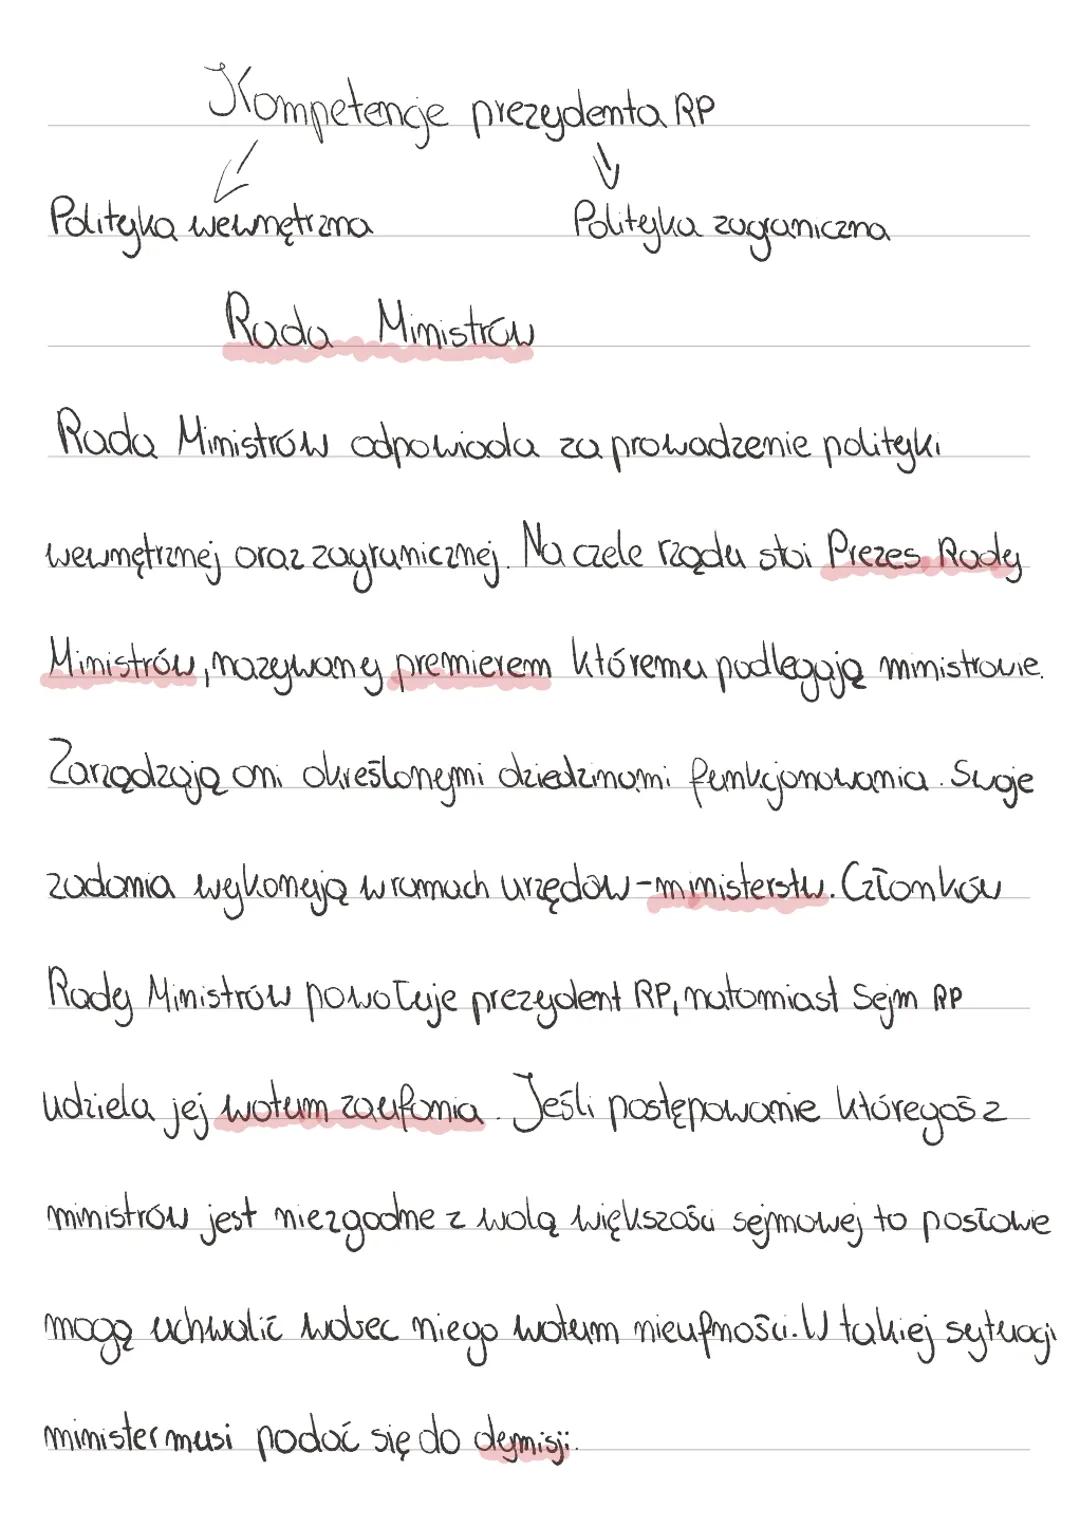 Kompetencje prezydenta RP
Polityka wewnętrzna Polityka zagraniczna
Rada Ministrów
Rada Ministrów odpowiada za prowadzenie polityki
wewnętrznej oraz zagranicznej. Na czele rządu stoi Prezes Rady
Ministrów, nazywany premierem któremu podlegają ministrowie.
Zarządzają oni określonymi dziedzinami funkcjonowania. Swoje
zadania wykonują w ramach urzędów - ministerstw. Członków
Rady Ministrów powołuje prezydent RP, natomiast Sejm RP
udziela jej wotum zaufania. Jeśli postępowanie któregoś z
ministrów jest niezgodne z wolą większości sejmowej to posłowie
mogą uchwalić wobec niego wotum nieufności. W takiej sytuacji
minister musi podać się do dymisji.